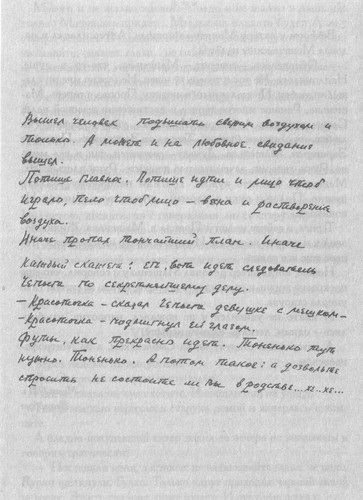 Вышел человек подышать свежим воздухом и
только. А может и на любовное свидание
вышел.
Потише главное. Потише идти и лицо чтоб
играло, пело чтоб лицо – весна и растворение
воздуха..
Иначе пропал тончайший план. Иначе
каждый скажет: эге, вота идет следователь
Чепыга по секретнейшему делу.
– Красоточка – сказал Чепыга девушке с мешком –
– Красоточка – подмигнул ей глазом.
Футы, как прекрасно идет. Тоненько тут
нужно. Тоненько. А потом такое: а дозвольте
спросить не состоите ли вы в родстве... хе.. хе...